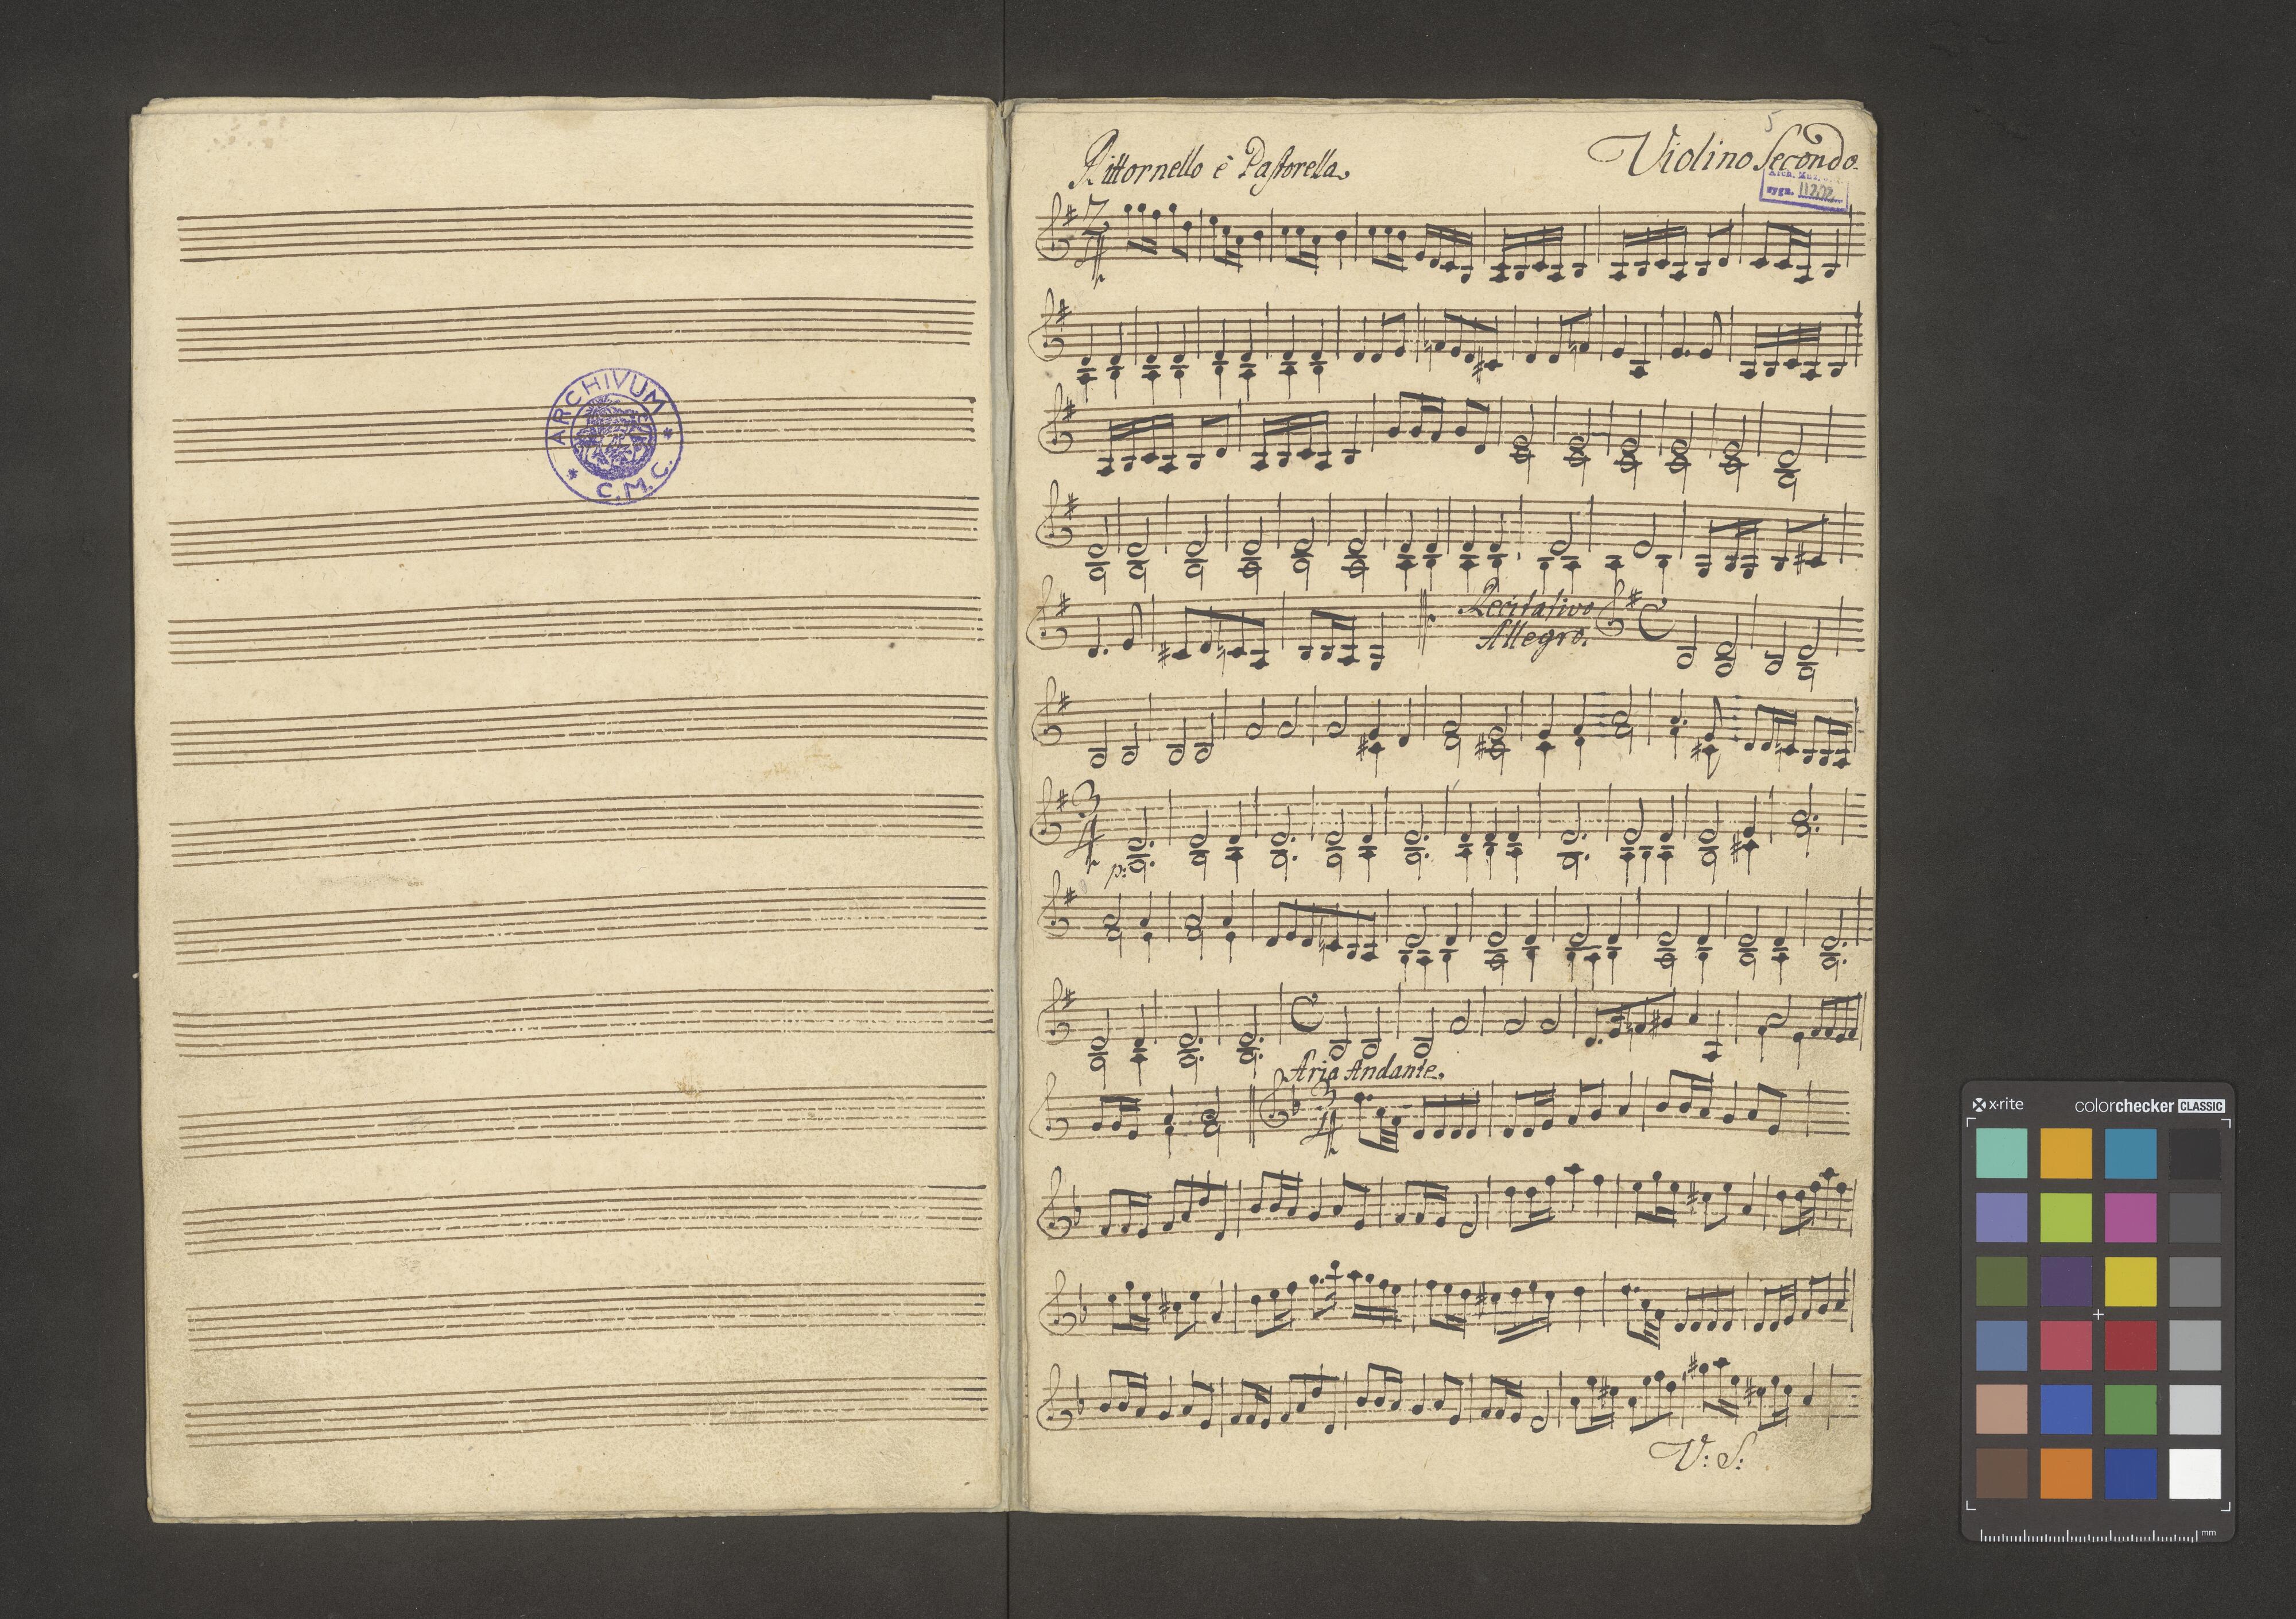 ARCHIVUM
* C.M.C. *
5
Rittornello è Pastorella.
Violino Secondo.
sygn.
2
4
Recitativo
Allegro.
3
4
p:
Aria Andante.
3
4
V: S:
x·rite
colorchecker CLASSIC
mm